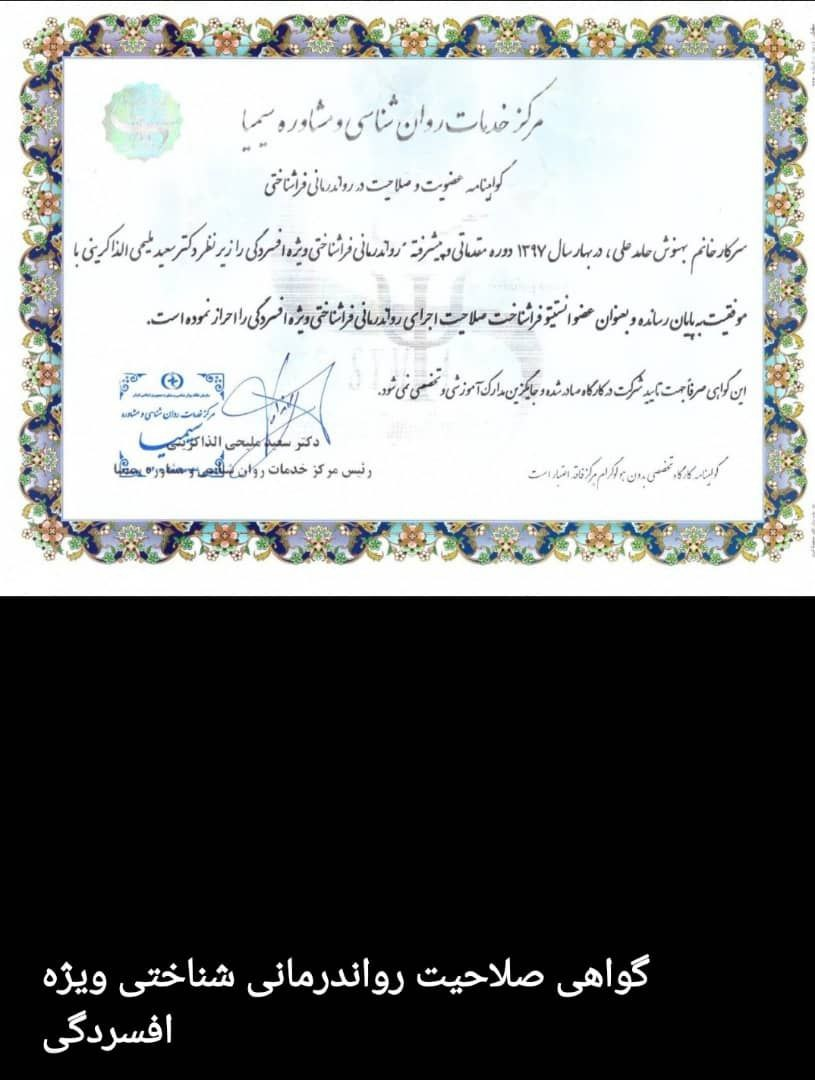 مرکز خدمات روان شناسی و مشاوره سیمیا
گواهینامه عضویت و صلاحیت در رواندرمانی فراشناختی
سرکار خانم بهنوش حامد علی ، در بهار سال ۱۳۹۷ دوره مقدماتی و پیشرفته "رواندرمانی فراشناختی ویژه افسردگی را زیر نظر دکتر سعید ملیحی الذاکرینی با
موفقیت به پایان رسانده و بعنوان عضو انستیتو فراشناخت صلاحیت اجرای رواندرمانی فراشناختی ویژه افسردگی را احراز نموده است.
این گواهی صرفاً جهت تایید شرکت در کارگاه صادر شده و جایگزین مدارک آموزشی و تخصصی نمی شود.
مرکز خدمات روان شناسی و مشاوره
سیمیا
دکتر سعید ملیحی الذاکرینی
رئیس مرکز خدمات روان شناسی و مشاوره سیمیا
گواهینامه کارگاه تخصصی بدون هولوگرام مرکز فاقد اعتبار است
گواهی صلاحیت رواندرمانی شناختی ویژه
افسردگی